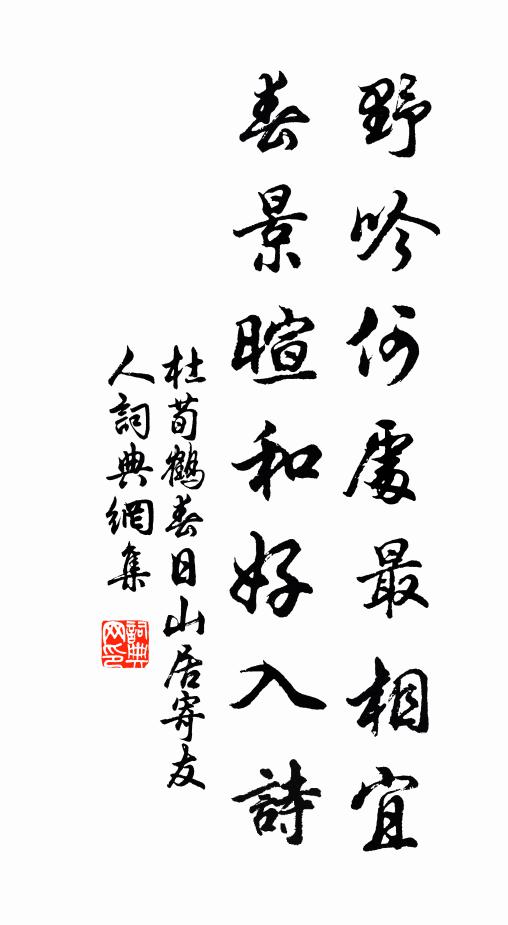 野吟何處最相宜
春景暄和好入詩
杜荀鶴春日山居寄友
人詞典網集
詞典網印